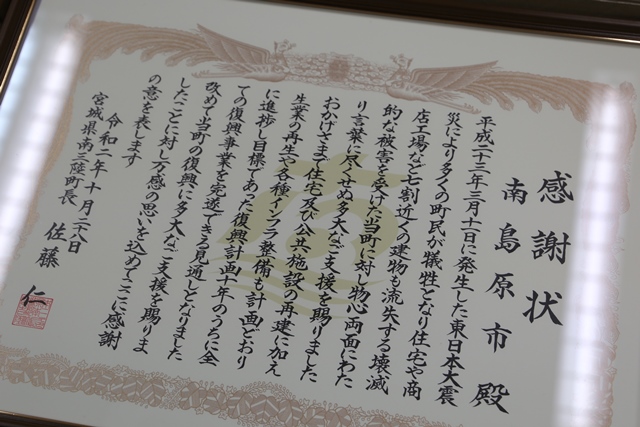 感謝状
南島原市殿
平成二十三年三月十日に発生した東日本大震
災により多くの町民が犠牲となり住宅や商
店工場など七割近くの建物も流失する壊滅
的な被害を受けた当町に対し物心両面にわた
り言葉に尽くせぬ多大なご支援を賜りました
おかげさまで住宅及び公共施設の再建に加え
生業の再生や各種インフラ整備も計画どおり
に進捗し目標であった復興計画十年のうちに全
ての復興事業を完遂できる見通しとなりました
改めて当町の復興に多大なご支援を賜りま
したことに対し万感の思いを込めてここに感謝
の意を表します
令和二年十月二十八日
宮城県南三陸町長 佐藤 仁